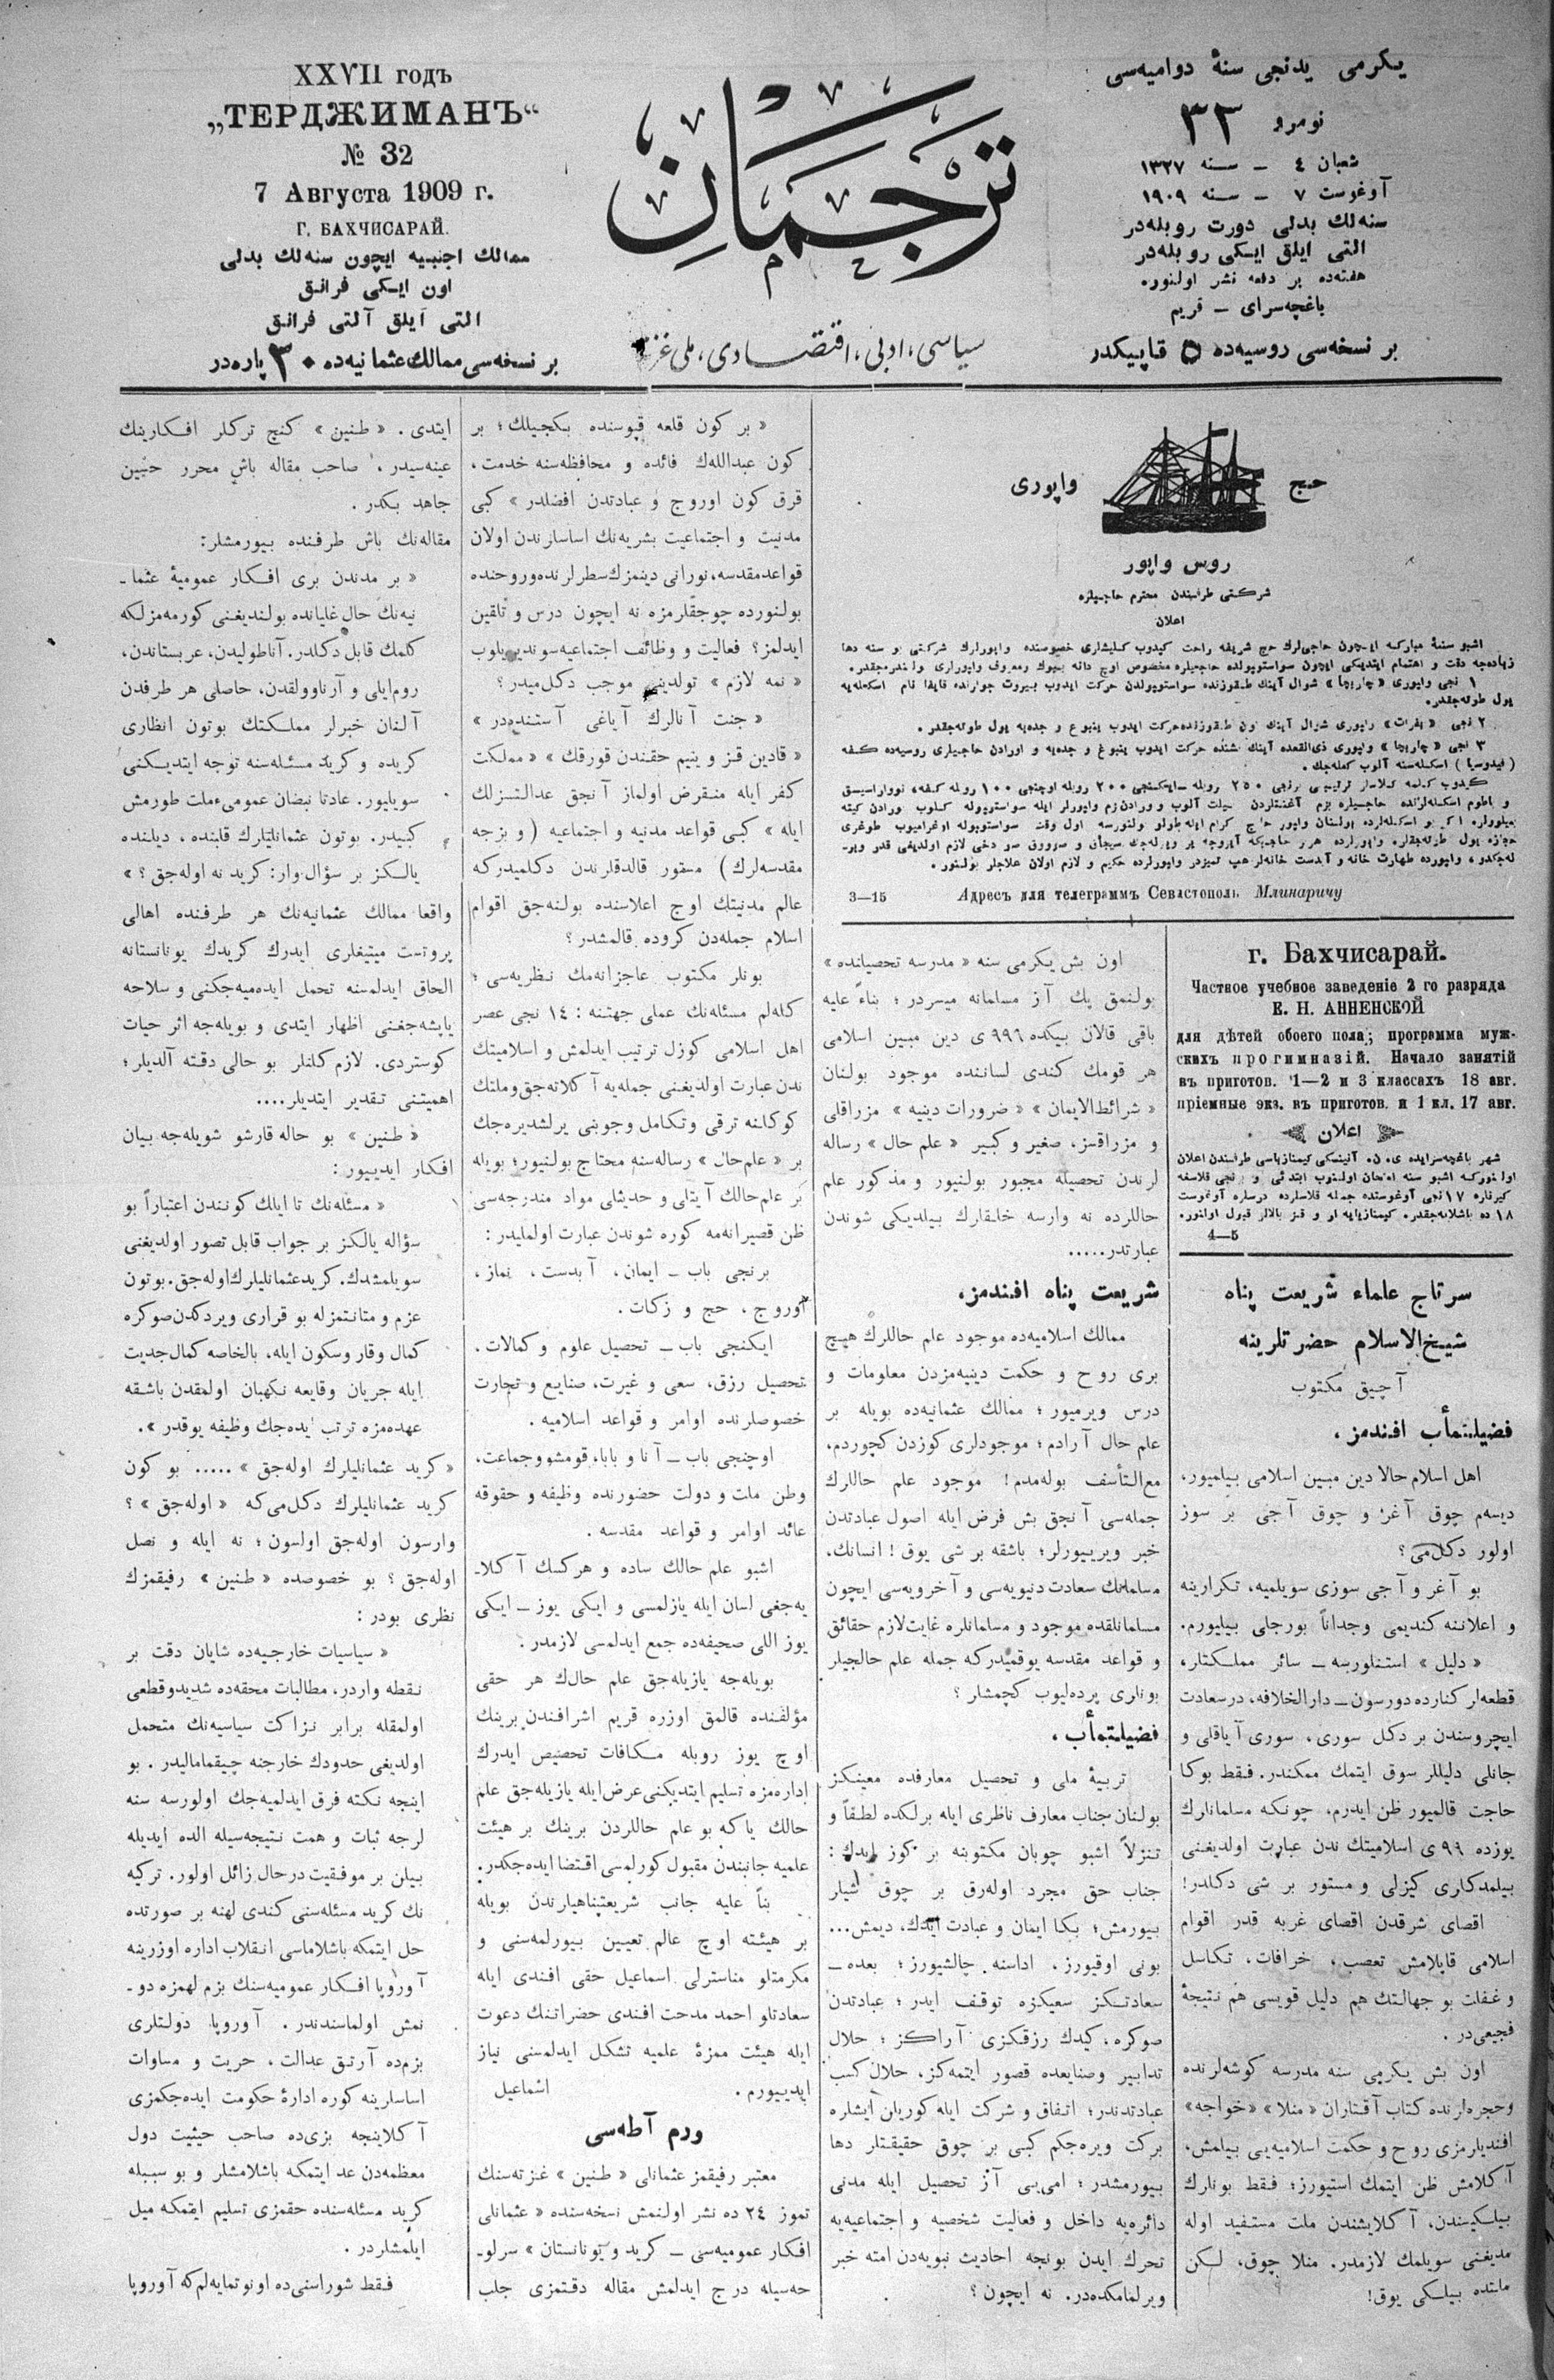 XXVII годъ
„ТЕРДЖИМАНЪ“
№ 32
7 Августа 1909 г.
Г. БАХЧИСАРАЙ.
ممالك اجنبیه ایچون سنه‌لك بدلی
اون ایكی فرانق
التی آیلق آلتی فرانق
بر نسخه‌سی ممالك عثمانیه‌ده ۳۰ پاره‌در
ترجمان
سیاسی، ادبی، اقتصادی، ملی غزته
یكرمی یدنجی سنهٔ دوامیه‌سی
نومرو ۳۲
شعبان ٤ ـ سنه ۱۳۲۷
آوغوست ۷ ـ سنه ۱۹۰۹
سنه‌لك بدلی دورت روبله‌در
التی ایلق ایكی روبله‌در
هفته‌ده بر دفعه نشر اولنور.
باغچه‌سرای ـ قریم
بر نسخه‌سی روسیه‌ده ۵ قاپیكدر
حج واپوری
روس واپور
شركتی طرفندن محترم حاجیلره
اعلان
3—15 Адресъ для телеграммъ Севастополь Млинаричу
г. Бахчисарай.
Частное учебное заведеніе 2 го разряда
Е. Н. АННЕНСКОЙ
для дѣтей обоего пола; программа муж-
скихъ прогимназій. Начало занятій
въ приготов. 1—2 и 3 классахъ 18 авг.
пріемные экз. въ приготов. и 1 кл. 17 авг.
اعلان
شهر باغچه‌سرایده ی. ن. آنینسكی كیمنازیاسی طرفندن اعلان
۱۸ ده باشلانه‌جقدر. كیمنازیایه او و قز بالالر قبول اولنور.
4—5
سرتاج علماء شریعت پناه
شیخ‌الاسلام حضرتلرینه
آچیق مكتوب
فضیلتمآب افندمز،
اهل اسلام حالا دین مبین اسلامی بیلمیور،
دیسه‌م چوق آغر و چوق آجی بر سوز
اولور دكل‌می؟
بو آغر و آجی سوزی سویلمیه، تكرارینه
و اعلاننه كندیمی وجداناً بورجلی بیلیورم.
« دلیل » استنلورسه ـ سائر مملكتلر،
قطعه‌لر كنارده دورسون ـ دارالخلافه، درسعادت
ایچروسندن بر دكل سوری، سوری آیاقلی و
جانلی دلیللر سوق ایتمك ممكندر. فقط بوكا
حاجت قالمیور ظن ایدرم، چونكه مسلمانلرك
یوزده ۹۹ ی اسلامیتك ندن عبارت اولدیغنی
بیلمدكلری كیزلی و مستور بر شی دكلدر!
اقصای شرقدن اقصای غربه قدر اقوام
اسلامی قاپلامش تعصب، خرافات، تكاسل
و غفلت بو جهالتك هم دلیل قویسی هم نتیجهٔ
فجیعی‌در.
اون بش یكرمی سنه مدرسه كوشه‌لرنده
وحجره‌لرنده كتاب آقتاران « منلا » « خواجه »
افندیلرمزی روح و حكمت اسلامیه‌یی بیلمش،
آكلامش ظن ایتمك استیورز؛ فقط بونلرك
بیلكیسندن، آكلایشندن ملت مستفید اوله
مدیغنی سویلمك لازمدر. منلا چوق، لكن
ملتده بیلكی یوق!
اون بش یكرمی سنه « مدرسه تحصیلنده »
بولنمق پك آز مسلمانه میسردر؛ بناءً علیه
باقی قالان بیكده ۹۹۶ ی دین مبین اسلامی
هر قومك كندی لساننده موجود بولنان
« شرائط‌الایمان » « ضرورات دینیه » مزراقلی
و مزراقسز، صغیر و كبیر « علم حال » رساله
لرندن تحصیله مجبور بولنیور و مذكور علم
حاللرده نه وارسه خلقلرك بیلدیكی شوندن
عبارتدر.....
شریعت پناه افندمز،
ممالك اسلامیه‌ده موجود علم حاللرك هیچ
بری روح و حكمت دینیه‌مزدن معلومات و
درس ویرمیور؛ ممالك عثمانیه‌ده بویله بر
علم حال آرادم؛ موجودلری كوزدن كچوردم،
مع‌التأسف بوله‌مدم! موجود علم حاللرك
جمله‌سی آنجق بش فرض ایله اصول عبادتدن
خبر ویرییورلر؛ باشقه بر شی یوق! انسانك،
مسلمانك سعادت دنیویه‌سی و آخرویه‌سی ایچون
مسلمانلقده موجود و مسلمانلره غایت لازم حقائق
و قواعد مقدسه یوقمیدركه جمله علم حالجیلر
بونلری پرده‌لیوب كچمشلر؟
فضیلتمآب،
تربیهٔ ملی و تحصیل معارفده معینكز
بولنان جناب معارف ناظری ایله برلكده لطفاً و
تنزلاً اشبو چوبان مكتوبنه بر كوز ایدك:
جناب حق مجرد اوله‌رق بر چوق شیلر
بیورمش؛ بكا ایمان و عبادت ایدك، دیمش...
بونی اوقیورز، اداسنه چالشیورز؛ بعده ـ
سعادتكز سعیكزه توقف ایدر؛ عبادتدن
صوكره، كیدك رزقكزی آراكز؛ حلال
تدابیر وصنایعده قصور ایتمه‌كز، حلال كسب
عبادتدندر؛ اتفاق و شركت ایله كوریلن ایشلره
بركت ویره‌جكم كبی بر چوق حقیقتلر دها
بیورمشدر؛ امی‌یی آز تحصیل ایله مدنی
دائره‌یه داخل و فعالیت شخصیه و اجتماعیه‌یه
تحرك ایدن بونجه احادیث نبویه‌دن امته خبر
ویرلمامكده‌در. نه ایچون؟
« بر كون قلعه قپوسنده بكجیلك؛ بر
كون عبداللهك فائده و محافظه‌سنه خدمت،
قرق كون اوروج و عبادتدن افضلدر » كبی
مدنیت و اجتماعیت بشریه‌نك اساسلرندن اولان
قواعد مقدسه، نورانی دینمزك سطرلرنده و روحنده
بولنورده چوجقلرمزه نه ایچون درس و تلقین
ایدلمز؟ فعالیت و وظائف اجتماعیه سوندیریلوب
« نمه لازم » تولدینی موجب دكل‌میدر؟
« جنت آنالرك آیاغی آستنده‌در »
« قادین قز و یتیم حقندن قورقك » « مملكت
كفر ایله منقرض اولماز آنجق عدالتسزلك
ایله » كبی قواعد مدنیه و اجتماعیه (و بزجه
مقدسه‌لرك) مستور قالدقلرندن دكلمیدركه
عالم مدنیتك اوج اعلاسنده بولنه‌جق اقوام
اسلام جمله‌دن كروده قالمشدر؟
بونلر مكتوب عاجزانه‌مك نظریه‌سی؛
كله‌لم مسئله‌نك عملی جهتنه: ۱٤ نجی عصر
اهل اسلامی كوزل ترتیب ایدلمش و اسلامیتك
ندن عبارت اولدیغنی جمله‌یه آكلاته‌جق وملتك
كوكلنه ترقی وتكامل وجوبنی یرلشدیره‌جك
بر « علم‌حال » رساله‌سنه محتاج بولنیور؛ بویله
بر علم‌حالك آیتلی و حدیثلی مواد مندرجه‌سی
ظن قصیرانه‌مه كوره شوندن عبارت اولملیدر:
برنجی باب ـ ایمان، آبدست، نماز،
اوروج، حج و زكات.
ایكنجی باب ـ تحصیل علوم و كمالات،
تحصیل رزق، سعی و غیرت، صنایع و تجارت
خصوصلرنده اوامر و قواعد اسلامیه.
اوچنجی باب ـ آنا و بابا، قومشو وجماعت،
وطن ملت و دولت حضورنده وظیفه و حقوقه
عائد اوامر و قواعد مقدسه.
اشبو علم حالك ساده و هركسك آكلا-
یه‌جغی لسان ایله یازلمسی و ایكی یوز ـ ایكی
یوز اللی صحیفه‌ده جمع ایدلمسی لازمدر.
بویله‌جه یازیله‌جق علم حال‌ك هر حقی
مؤلفنده قالمق اوزره قریم اشرافندن برینك
اوچ یوز روبله مكافات تخصیص ایدرك
اداره‌مزه تسلیم ایتدیكنی عرض ایله یازیله‌جق علم
حالك یاكه بو علم حاللردن برینك بر هیئت
علمیه جانبندن مقبول كورلمسی اقتضا ایده‌جكدر.
بناً علیه جانب شریعتپناهیلرندن بویله
بر هیئته اوچ عالم تعیین بیورلمه‌سنی و
مكرمتلو مناسترلی اسماعیل حقی افندی ایله
سعادتلو احمد مدحت افندی حضراتنك دعوت
ایله هیئت ممزهٔ علمیه تشكل ایدلمسنی نیاز
ایدییورم. اسماعیل
ورم آطه‌سی
معتبر رفیقمز عثمانلی « طنین » غزته‌سنك
تموز ۲٤ ده نشر اولنمش نسخه‌سنده « عثمانلی
افكار عمومیه‌سی ـ كرید و یونانستان » سرلو-
حه‌سیله درج ایدلمش مقاله دقتمزی جلب
ایتدی. « طنین » كنج تركلر افكارینك
عینه‌سیدر، صاحب مقاله باش محرر حسین
جاهد بكدر.
مقاله‌نك باش طرفنده بیورمشلر:
« بر مدتدن بری افكار عمومیهٔ عثما-
نیه‌نك حال غلیانده بولندیغنی كورمه‌مزلكه
كلمك قابل دكلدر. آناطولیدن، عربستاندن،
روم‌ایلی و آرناوولقدن، حاصلی هر طرفدن
آلنان خبرلر مملكتك بوتون انظاری
كریده و كرید مسئله‌سنه توجه ایتدیكنی
سویلیور. عادتا نبضان عمومیءملت طورمش
كبیدر. بوتون عثمانلیلرك قلبنده، دیلنده
یالكز بر سؤال وار: كرید نه اوله‌جق؟ »
واقعا ممالك عثمانیه‌نك هر طرفنده اهالی
پروتست میتیغلری ایدرك كریدك یونانستانه
الحاق ایدلمسنه تحمل ایده‌میه‌جكنی و سلاحه
یاپیشه‌جغنی اظهار ایتدی و بویله‌جه اثر حیات
كوستردی. لازم كلنلر بو حالی دقته آلدیلر؛
اهمیتنی تقدیر ایتدیلر....
« طنین » بو حاله قارشو شویله‌جه بیان
افكار ایدییور:
« مسئله‌نك تا ایلك كونندن اعتباراً بو
سؤاله یالكز بر جواب قابل تصور اولدیغنی
سویلمشدك. كرید عثمانلیلرك اوله‌جق. بوتون
عزم و متانتمزله بو قراری ویردكدن صوكره
كمال وقار وسكون ایله، بالخاصه كمال جدیت
ایله جریان وقایعه نكهبان اولمقدن باشقه
عهده‌مزه ترتب ایده‌جك وظیفه یوقدر ».
« كرید عثمانلیلرك اوله‌جق » ..... بو كون
كرید عثمانلیلرك دكل‌می‌كه « اوله‌جق »؟
وارسون اوله‌جق اولسون؛ نه ایله و نصل
اوله‌جق؟ بو خصوصده « طنین » رفیقمزك
نظری بودر:
« سیاسیات خارجیه‌ده شایان دقت بر
نقطه واردر، مطالبات محقه‌ده شدید و قطعی
اولمقله برابر نزاكت سیاسیه‌نك متحمل
اولدیغی حدودك خارجنه چیقمامالیدر. بو
اینجه نكته فرق ایدلمیه‌جك اولورسه سنه
لرجه ثبات و همت نتیجه‌سیله الده ایدیله
بیلن بر موفقیت درحال زائل اولور. تركیه
نك كرید مسئله‌سنی كندی لهنه بر صورتده
حل ایتمكه باشلاماسی انقلاب اداره اوزرینه
آوروپا افكار عمومیه‌سنك بزم لهمزه دو-
نمش اولماسندندر. آوروپا دولتلری
بزم‌ده آرتق عدالت، حریت و مساوات
اساسلرینه كوره ادارهٔ حكومت ایده‌جكمزی
آكلاینجه بزی‌ده صاحب حیثیت دول
معظمه‌دن عد ایتمكه باشلامشلر و بو سبیله
كرید مسئله‌سنده حقمزی تسلیم ایتمكه میل
ایلمشلردر.
فقط شوراسنی‌ده اونوتمایه‌لم‌كه آوروپا